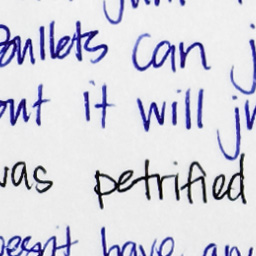 Bullets can j
out it will ju
was petrified
oesn't have any